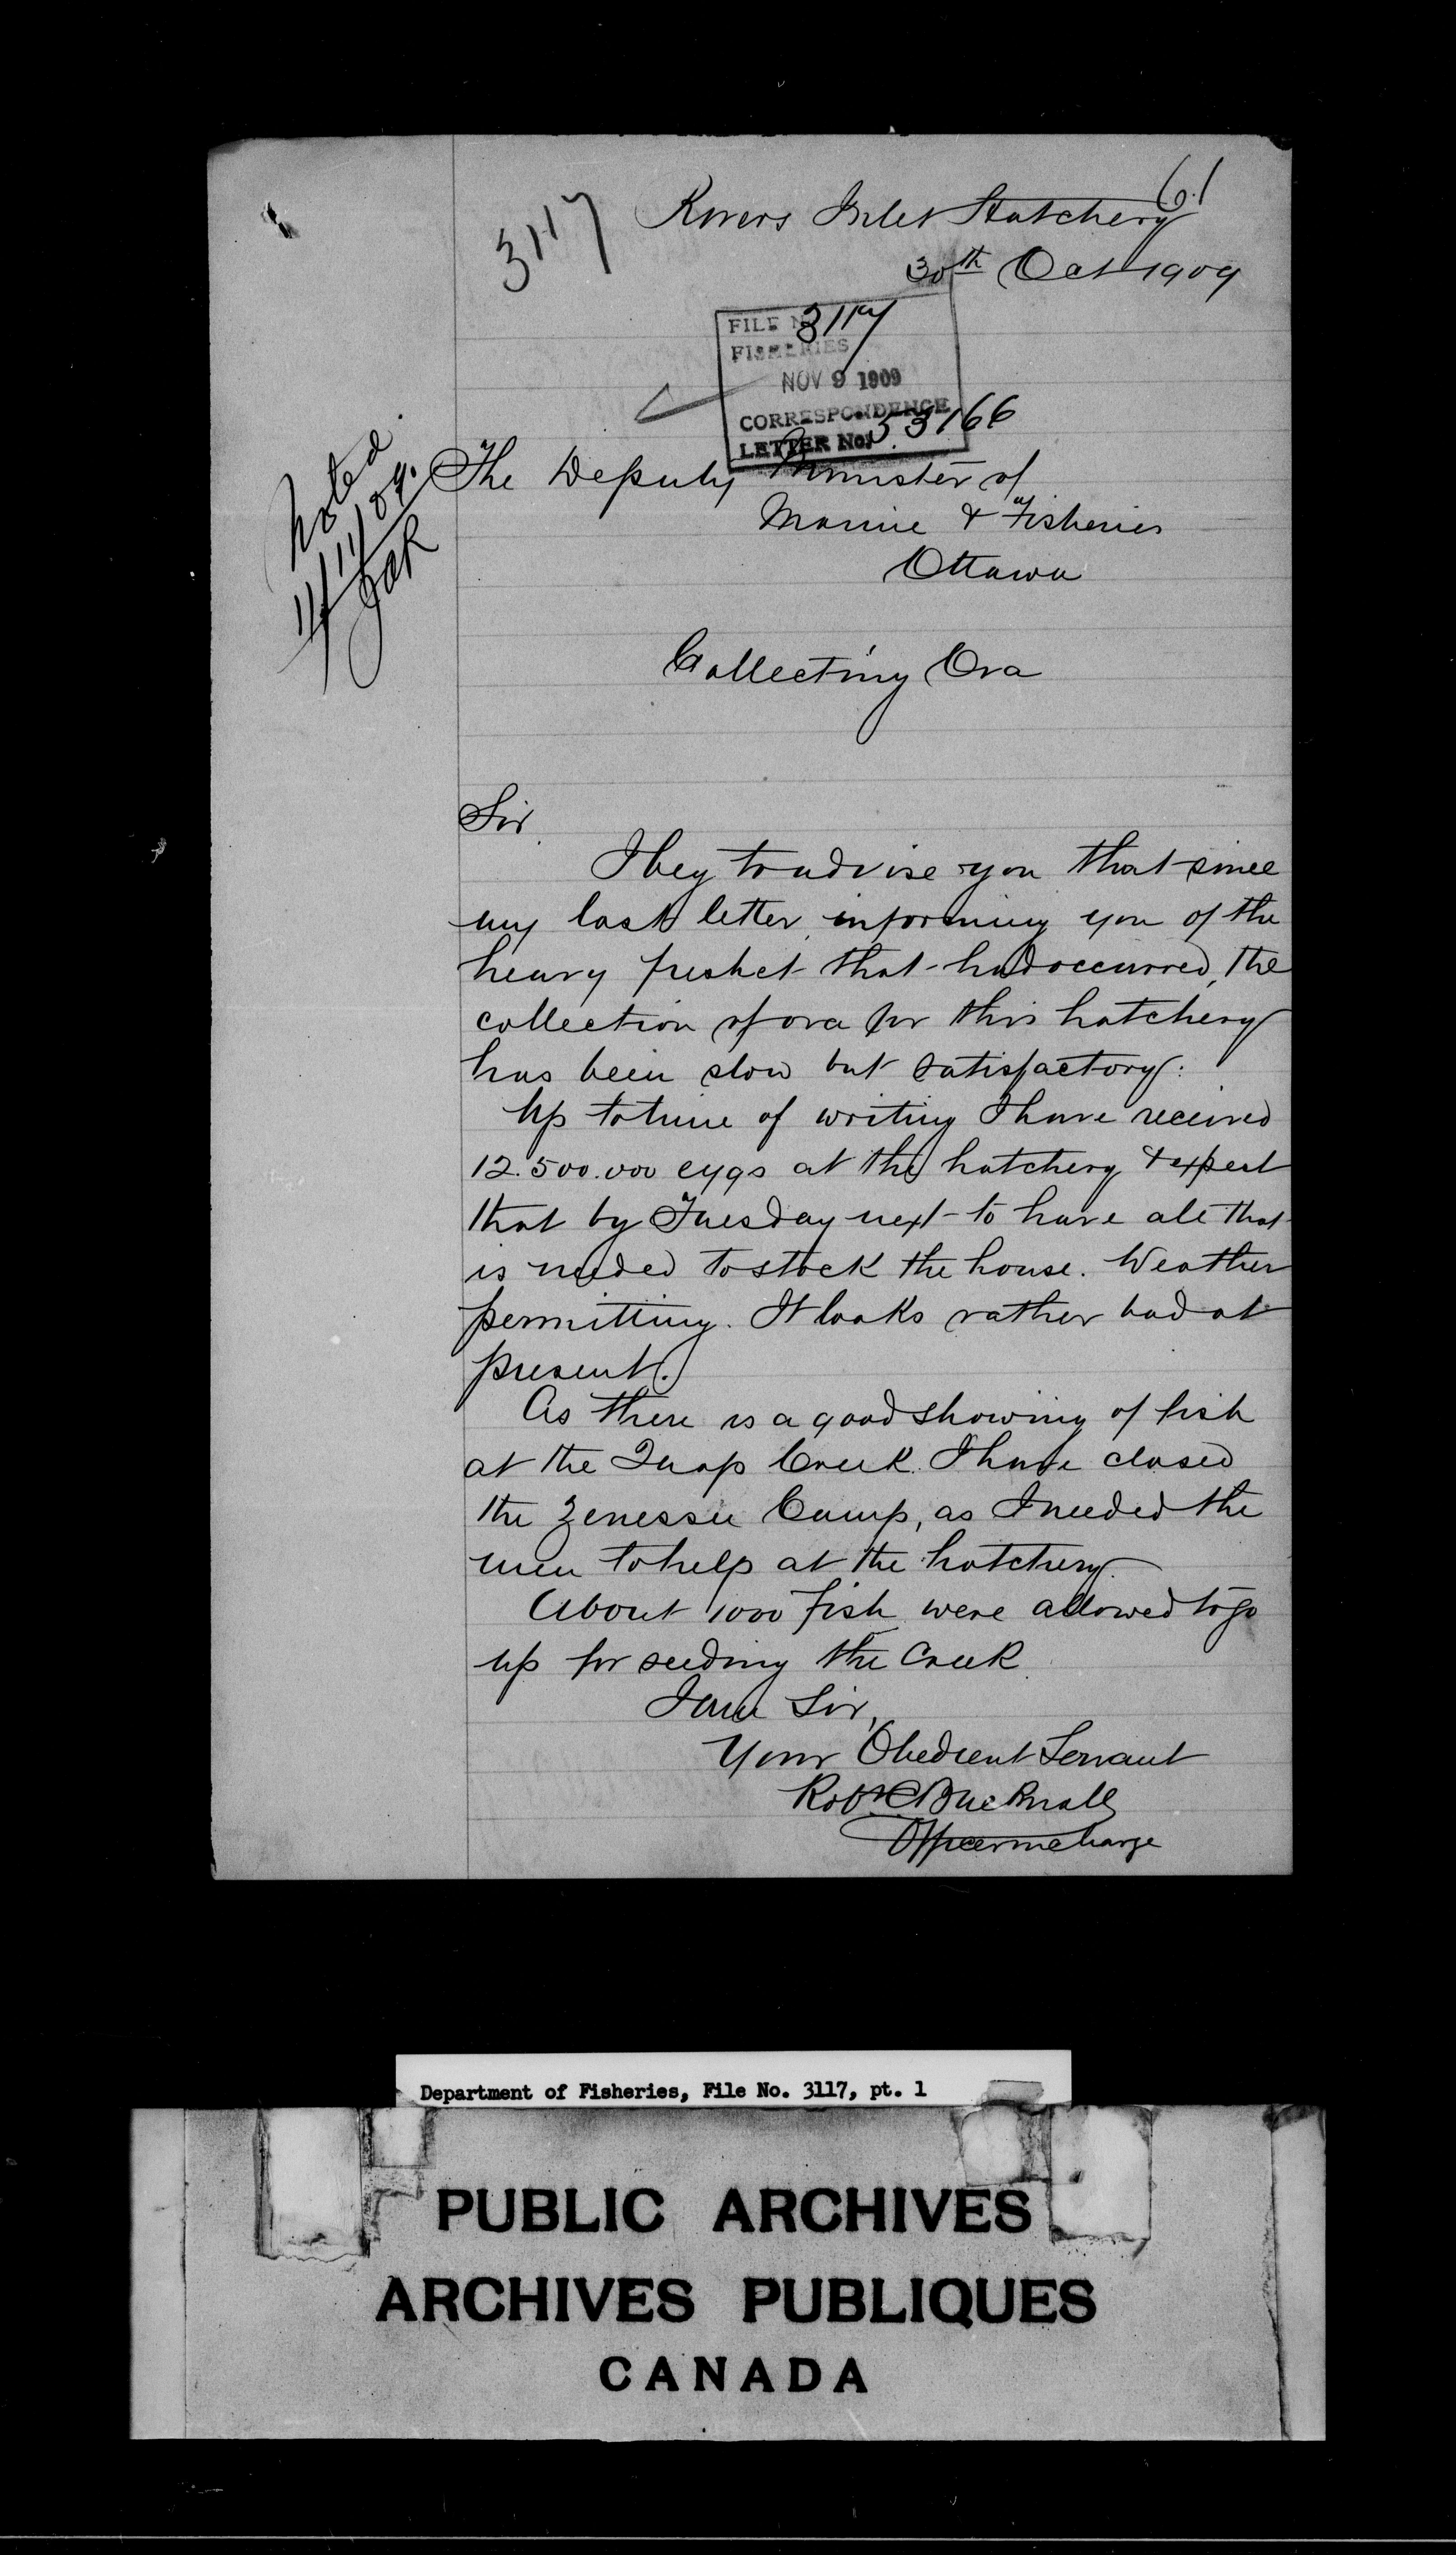 61
3117
Rivers Inlet Hatchery
30th Oct 1909
FILE No 3117
FISHERIES
NOV 9 1909
CORRESPONDENCE
LETTER No. 53166
Noted.
11/11/09.
The Deputy Minister of
Marine & Fisheries
Ottawa
Collecting Ova
Sir
I beg to advise you that since
my last letter, informing you of the
heavy freshet that had occurred, the
collection of ova for this hatchery
has been slow but satisfactory.
Up to time of writing I have received
12.500.000 eggs at the hatchery & expect
that by Tuesday next to have all that
is needed to stock the house. Weather
permitting. It looks rather bad at
present.
As there is a good showing of fish
at the Quap Creek. I have closed
the Zenessie Camp, as I needed the
men to help at the hatchery.
About 1000 fish were allowed to go
up for seeding the Creek.
I am Sir,
Your Obedient Servant
Robt C Bucknall
Officer in charge
Department of Fisheries, File No. 3117, pt. 1
PUBLIC ARCHIVES
ARCHIVES PUBLIQUES
CANADA